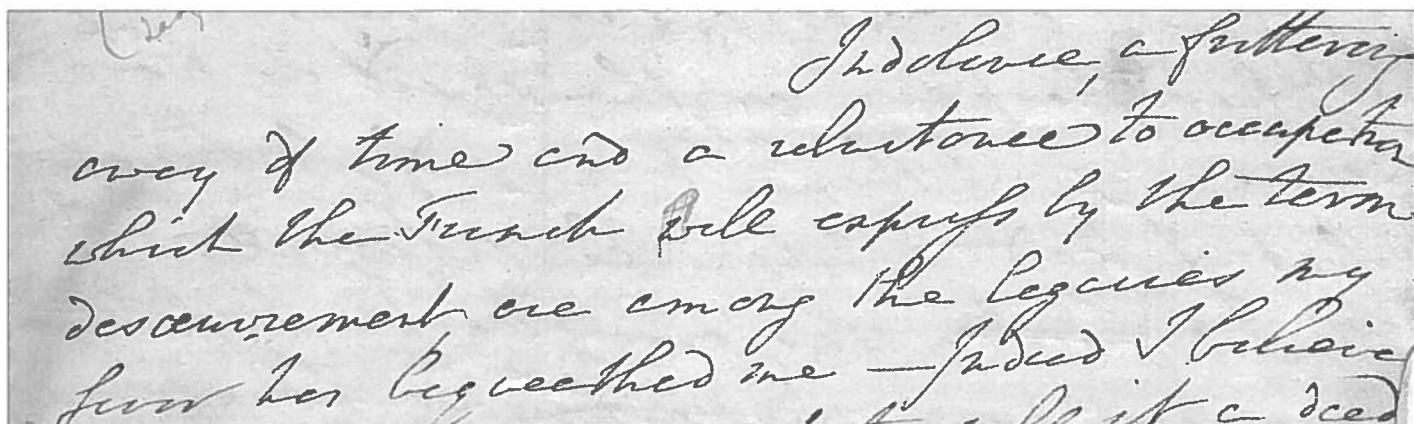 Indolence, a frittering
away of time and a reluctance to occupation
which the French well express by the term
desœuvrement, are among the legacies my
fever has bequeathed me — Indeed I believe
it a deed